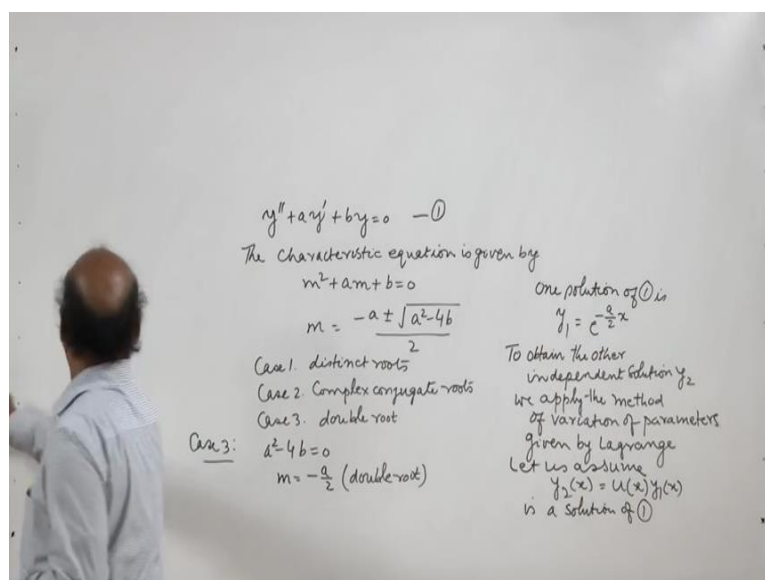 y'' + ay' + by = 0 — ①
The characteristic equation is given by
m² + am + b = 0
m = (-a ± √(a²-4b))/2
Case 1. distinct roots
Case 2. Complex conjugate roots
Case 3. double root
Case 3: a²-4b = 0
m = -a/2 (double root)
One solution of ① is
y₁ = e^(-a/2 x)
To obtain the other
independent solution y₂
we apply the method
of variation of parameters
given by Lagrange
Let us assume
y₂(x) = u(x)y₁(x)
is a solution of ①